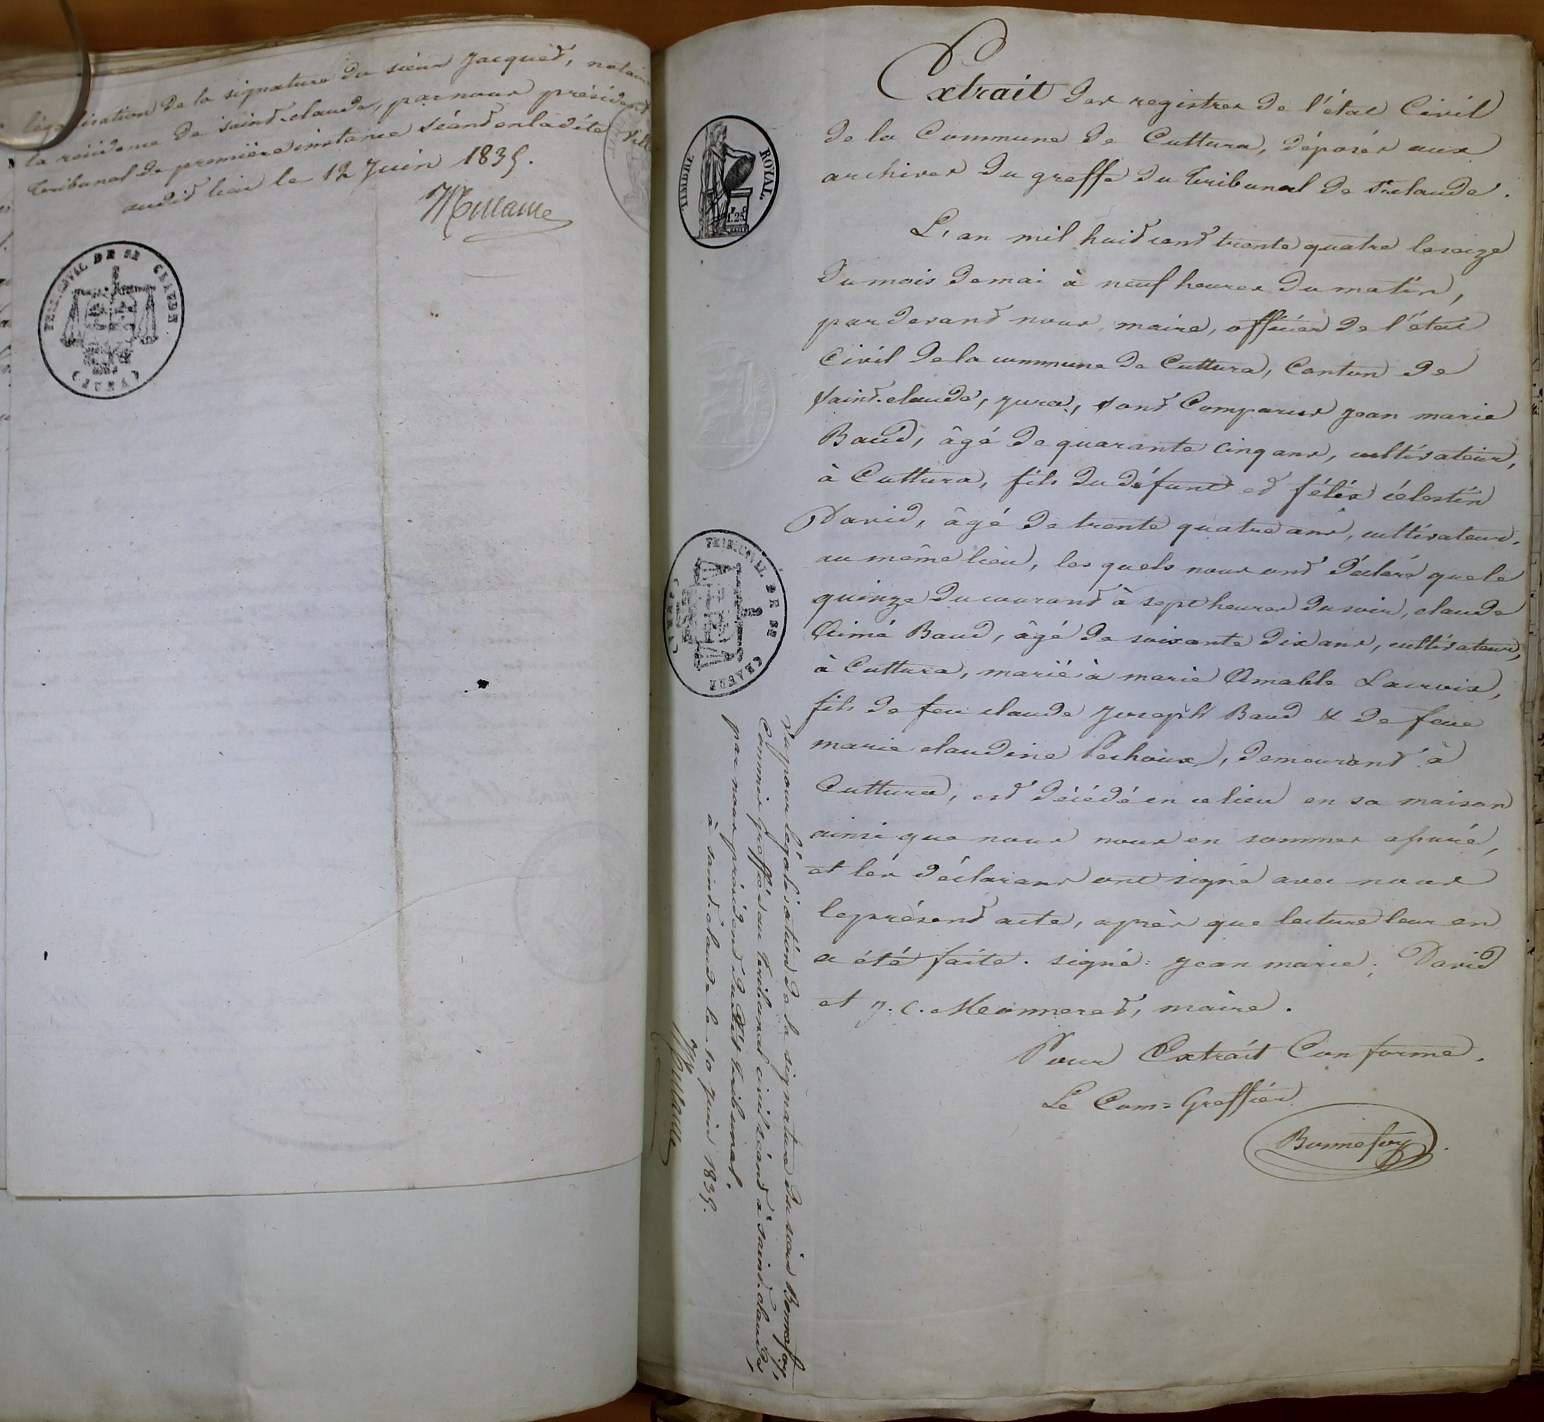 légalisation de la signature du sieur Jacquet, notaire
la résidence de saint-claude, par nous président
tribunal de première instance séant en la dite ville
audit lieu le 12 Juin 1835.
TRIB. CIVIL DE ST CLAUDE
(JURA)
TIMBRE ROYAL
Extrait des registres de l'état Civil
de la Commune de Cuttura, déposés aux
archives du greffe du tribunal de St claude.
L'an mil huit cent trente quatre le seize
du mois de mai à neuf heures du matin,
par devant nous, maire, officier de l'état
Civil de la commune de Cuttura, Canton de
saint-claude, jura, sont Comparus jean marie
Baud, âgé de quarante cinq ans, cultivateur,
à Cuttura, fils du défunt et félix célestin
David, âgé de trente quatre ans, cultivateur
au même lieu, les quels nous ont déclaré que le
quinze du courant à sept heures du soir, claude
Aimé Baud, âgé de soixante dix ans, cultivateur,
à Cuttura, marié à marie Amable Lacroix,
fils de feu claude joseph Baud & de feue
marie claudine Pechoux, demeurant à
Cuttura, est décédé en ce lieu en sa maison
ainsi que nous nous en sommes assuré,
et les déclarans ont signé avec nous
le présent acte, après que lecture leur en
a été faite. signé: jean marie; David
et j. C. Monneret, maire.
Pour Extrait Conforme.
Le Com= Greffier
Bonnefoy
TRIBUNAL DE ST CLAUDE
(JURA)
Vu pour légalisation de la signature du sieur Bonnefoy,
Commis greffier au tribunal civil séant à saint-claude,
par nous président du dit tribunal.
à saint-claude le 10 juin 1835.